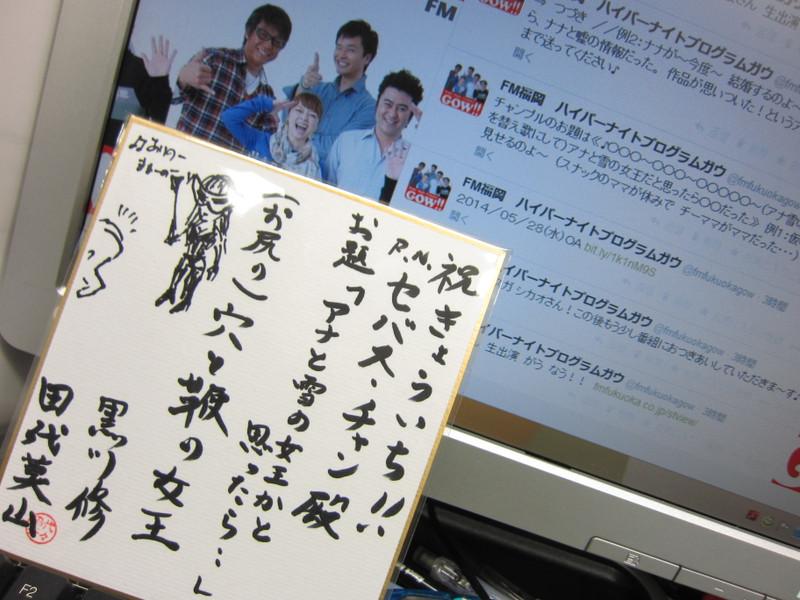 祝きょういち!!
P.N.セバス・チャン殿
お題「アナと雪の女王かと
思ったら…」
「お尻の穴と鞭の女王
黒川修
田代英山
FM
GOW!!
つづき // 例2:ナナが〜今度〜 結婚するのよ〜
ら、ナナと嘘の情報だった。作品が思いついた!というア
まで送ってください♪
開く
FM福岡 ハイパーナイトプログラムガウ @fmfukuokagow
チャンプルのお題は≪♪〇〇〇〜〇〇〇〜〇〇〇〇〇〜(アナ雪
を替え歌にして)アナと雪の女王だと思ったら〇〇だった≫ 例1:医
見せるのよ〜 (スナックのママが休みで チーママがママだった・・・)
開く
GOW!!
FM福岡 ハイパーナイトプログラムガウ @fmfukuokagow・3時間
2014/05/28(水)OA bit.ly/1k1nM9S
開く
GOW!!
ハイパーナイトプログラムガウ @fmfukuokagow・3時間
ガ シカオさん!この後もう少し番組におつきあいしていただきま〜す♪
イパーナイトプログラムガウ @fmfukuokagow・3時間
生出演 がう なう!! fmfukuoka.co.jp/stview/
F2